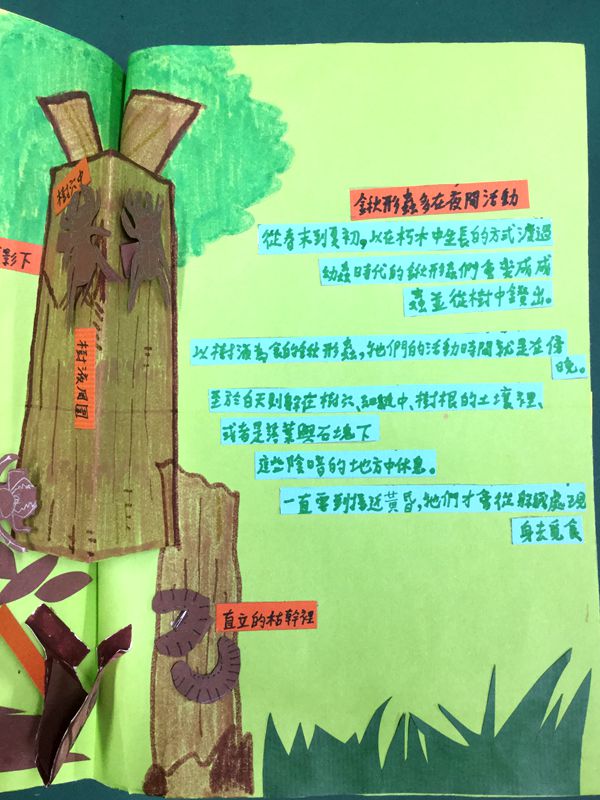 鍬形蟲多在夜間活動
從春末到夏初,以在朽木中生長的方式渡過
幼蟲時代的鍬形蟲們會變成成
蟲並從樹中鑽出。
以樹液為食的鍬形蟲,牠們的活動時間就是在傍
晚。
至於白天則躲在樹穴、細縫中、樹根的土壤裡、
或者是落葉與石塊下
這些陰暗的地方中休息。
一直要到接近黃昏,牠們才會從躲藏處現
身去覓食
樹穴中
影下
樹液周圍
直立的枯幹裡